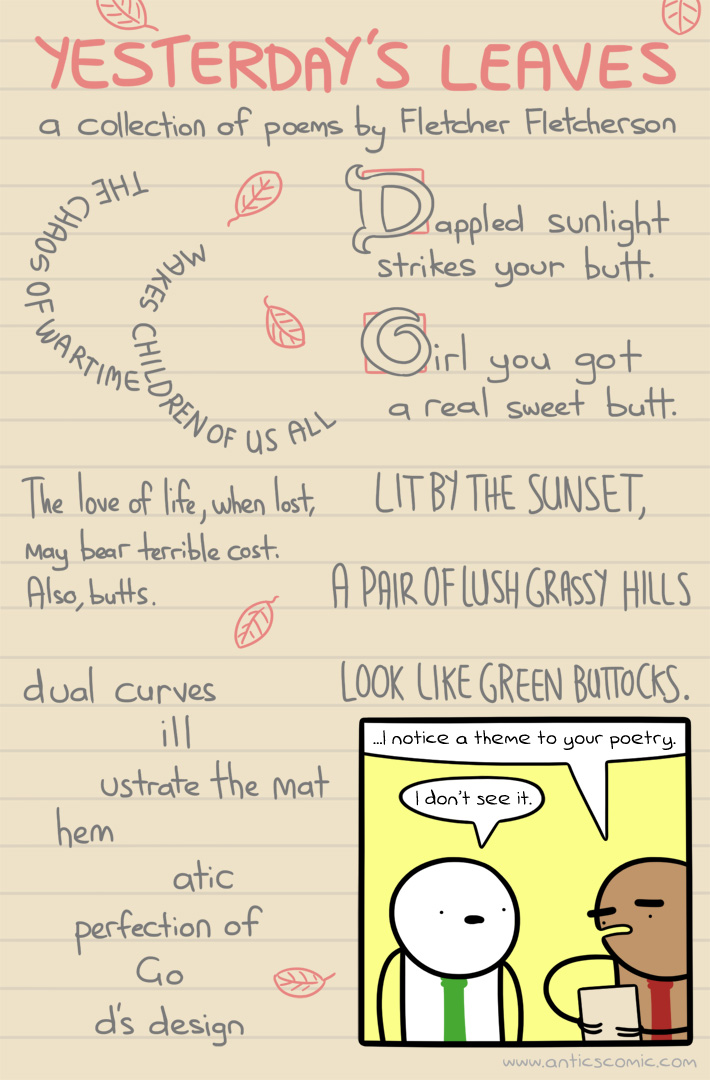 YESTERDAY'S LEAVES
a collection of poems by Fletcher Fletcherson
THE CHAOS OF WARTIME
MAKES CHILDREN OF US ALL
Dappled sunlight
strikes your butt.
Girl you got
a real sweet butt.
The love of life, when lost,
may bear terrible cost.
Also, butts.
LIT BY THE SUNSET,
A PAIR OF LUSH GRASSY HILLS
LOOK LIKE GREEN BUTTOCKS.
dual curves
ill
ustrate the mat
hem
atic
perfection of
Go
d's design
...I notice a theme to your poetry.
I don't see it.
www.anticscomic.com